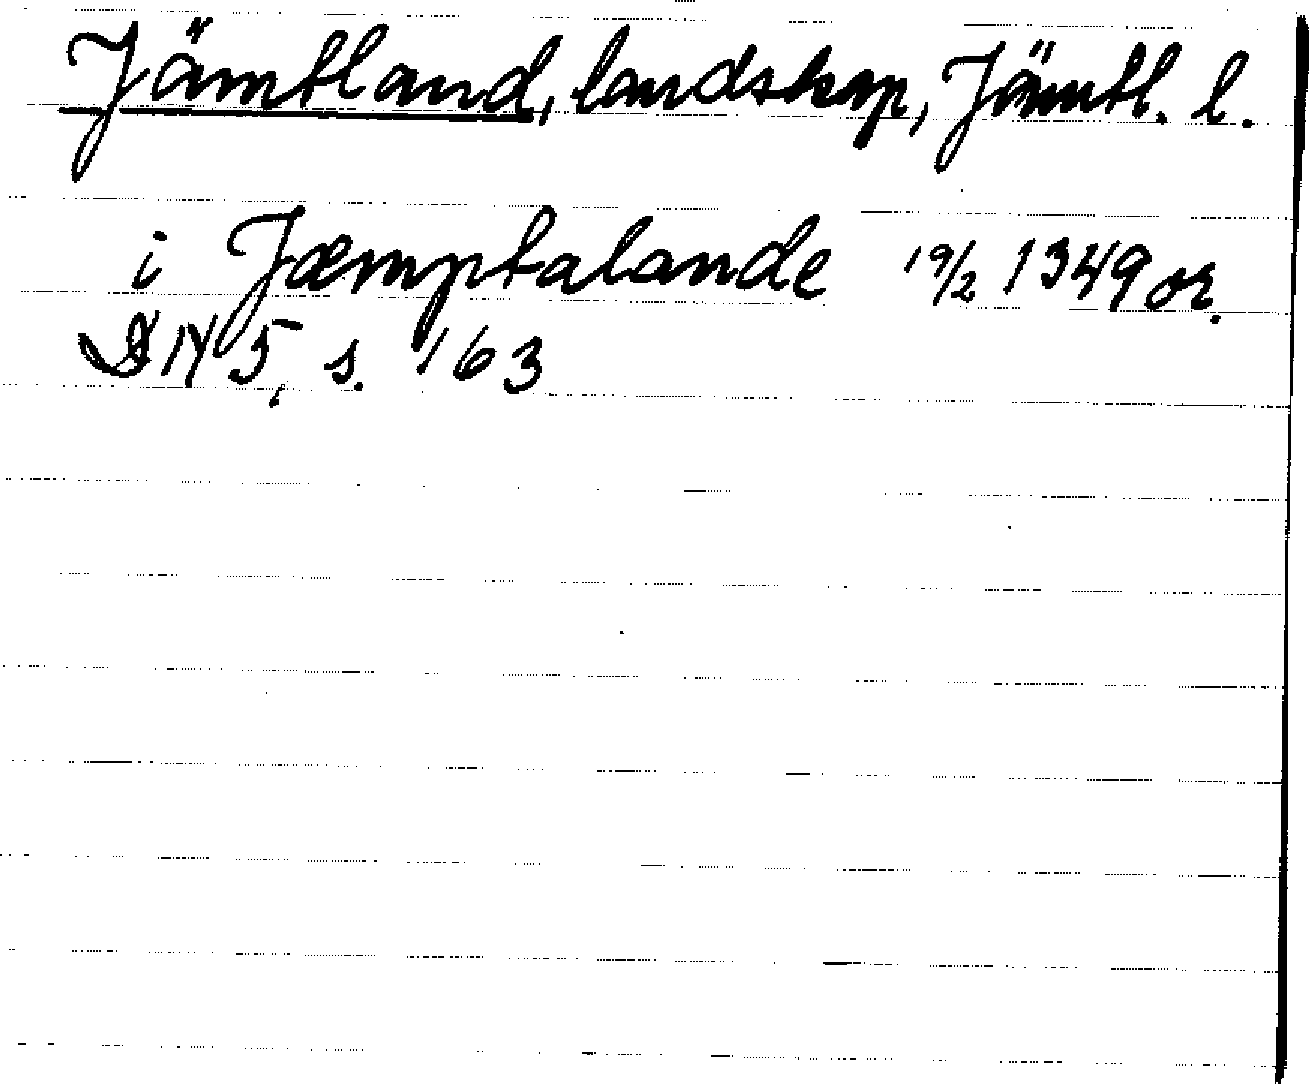 Jämtland, landskap, Jämtl. l.
i Jæmptalande 19/2 1349 or.
DN 5, s. 163